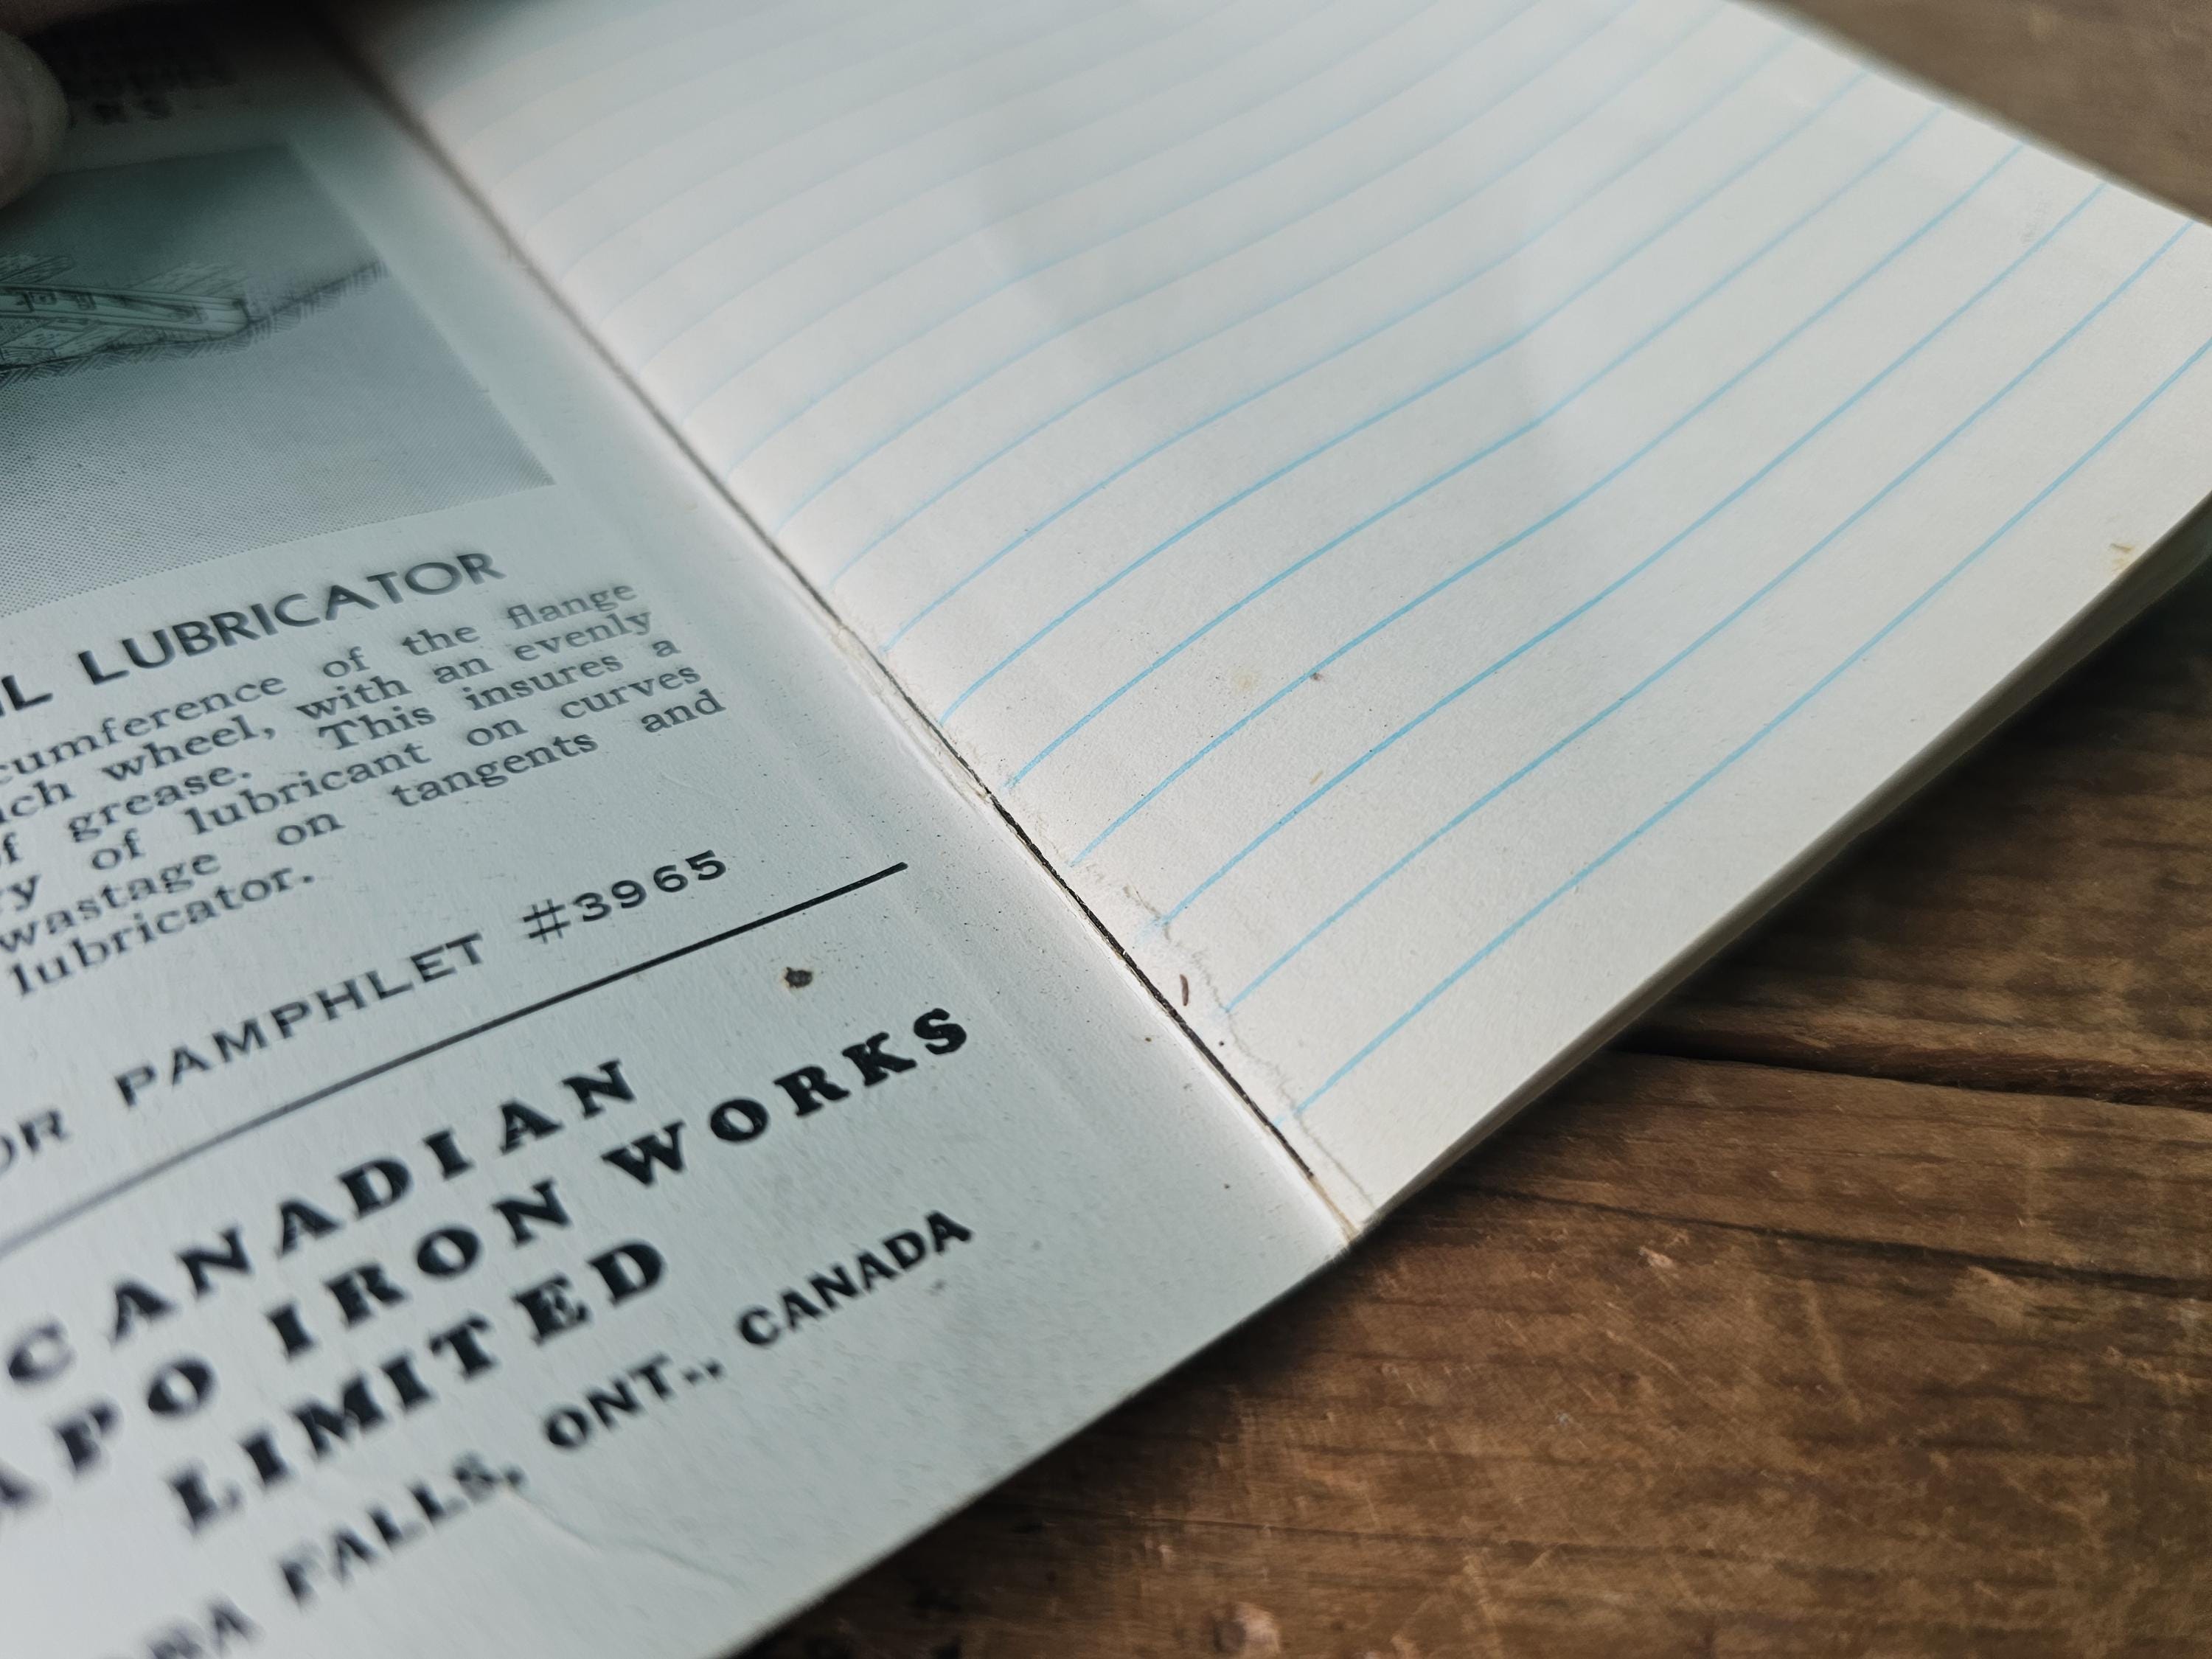 LUBRICATOR
of the flange
wheel, with an evenly
grease. This insures a
of lubricant on curves
wastage on tangents and
lubricator.
PAMPHLET #3965
CANADIAN
IRON WORKS
LIMITED
FALLS, ONT., CANADA